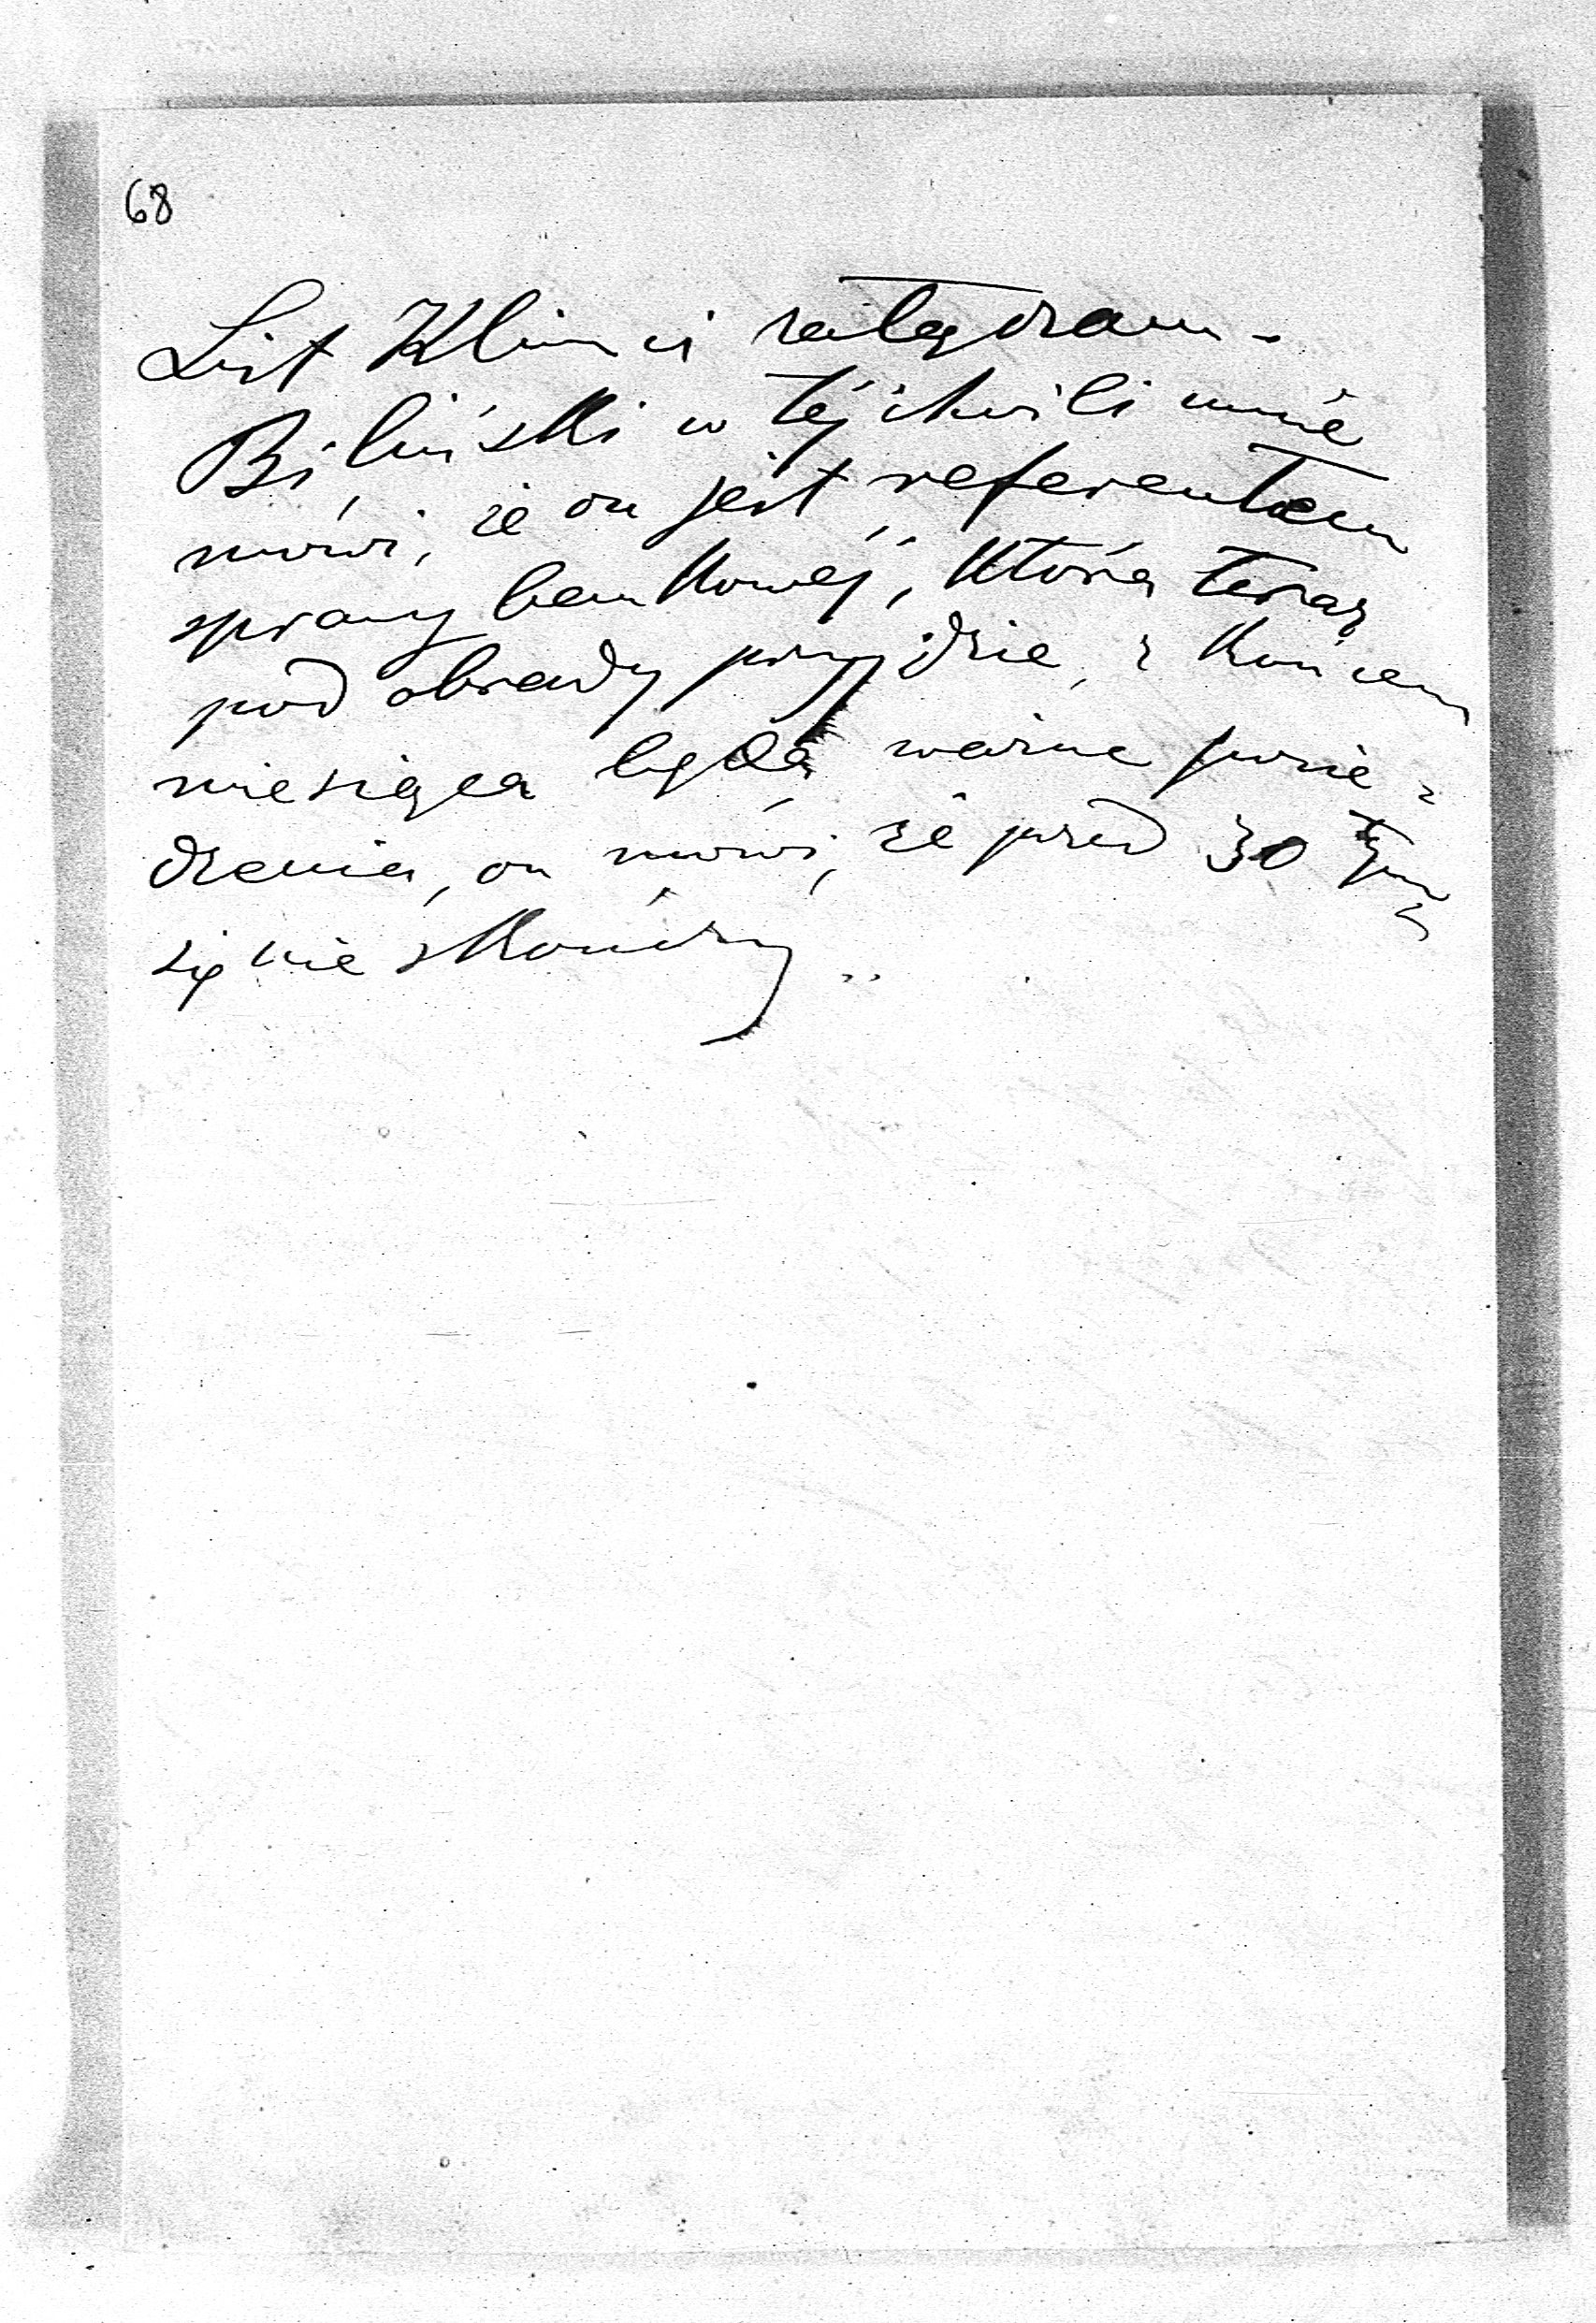 68
List Klimci załączam.
Biliński w téj chwili mnie
mówi, że on jest referentem
sprawy bankowéj, która teraz
pod obrady przyjdzie, z końcem
miesiąca będą ważne posie-
dzenia, on mówi, że przed 30 tym
się nie skończy..